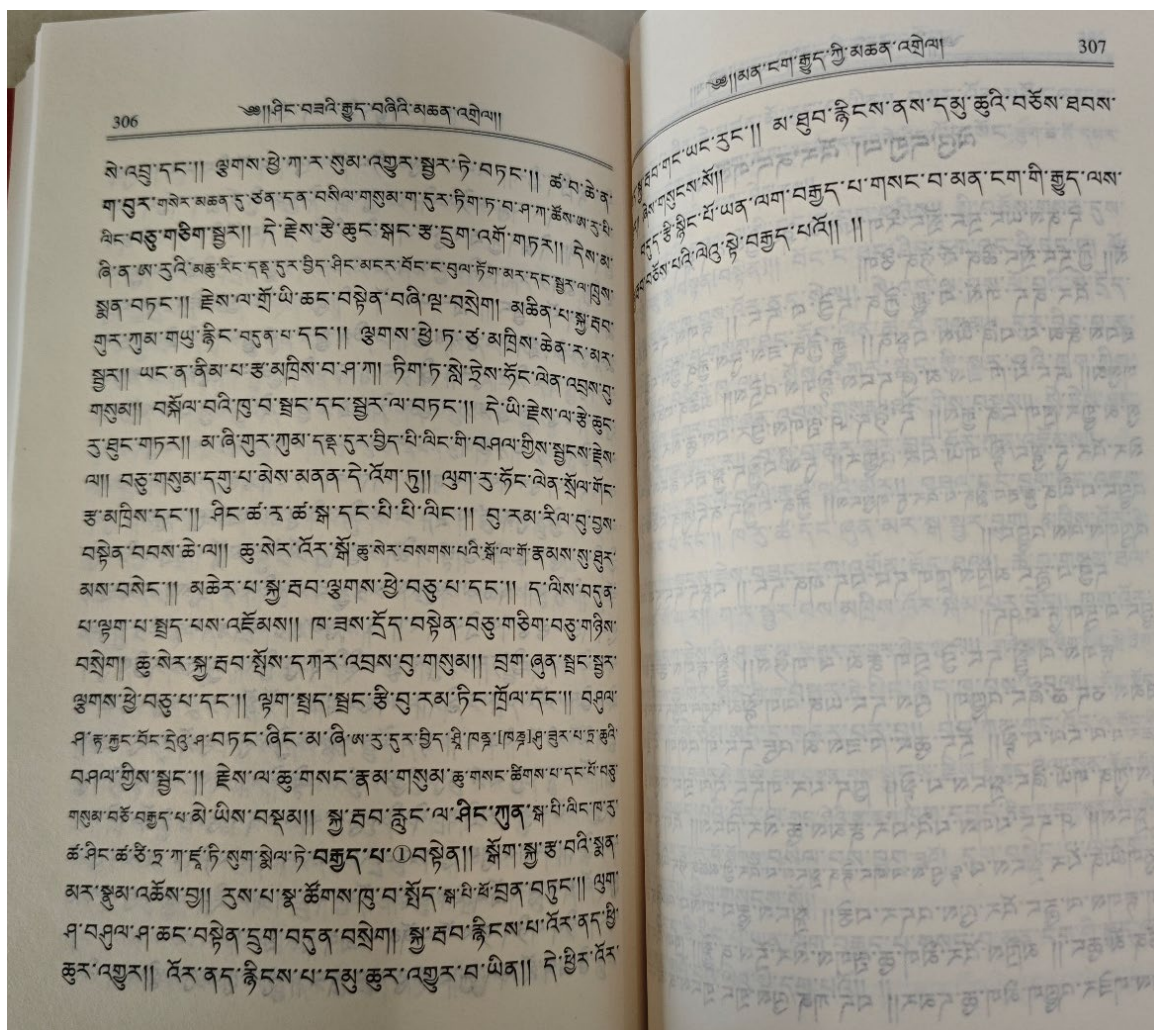 306
༄༅།།ཤིང་བཟའི་རྒྱུད་བཞིའི་མཆན་འགྲེལ།།
སེ་འབྲུ་དང་།། ལྕགས་ཕྱེ་ཀ་ར་སུམ་འགྱུར་སྦྱར་ཏེ་བཏང་།། ཚ་བ་ཆེ་ན་
ག་བུར་གསེར་མཆན་དུ་ཙན་དན་བསིལ་གསུམ་ག་དུར་ཏིག་ཏ་བ་ཤ་ཀ་ཚོས་ཨ་རུ་པི་
ལིང་བཅུ་གཅིག་སྦྱར།། དེ་རྗེས་རྩེ་ཆུང་སྐང་རྩ་དྲུག་འགོ་གཏར།། དེས་མ་
ཞི་ན་ཨ་རུའི་མཆུ་རིང་དནྡ་དུར་བྱིད་ཤིང་མངར་བོང་ང་བུལ་ཏོག་མར་དང་སྦྱར་ལ་ཁྲུས་
སྨན་བཏང་།། རྗེས་ལ་གྲོ་ཡི་ཆང་བསྟེན་བཞི་ལྔ་བསྲེག། མཆིན་པ་སྐྱ་རྦབ་
གུར་ཀུམ་གཡུ་རྙིང་བདུན་པ་དང་།། ལྕགས་ཕྱེ་ཏ་ཙ་མཁྲིས་ཆེན་ར་མར་
སྦྱར།། ཡང་ན་ནིམ་པ་རྩ་མཁྲིས་བ་ཤ་ཀ། ཏིག་ཏ་སླེ་ཏྲེས་ཧོང་ལེན་འབྲས་བུ་
གསུམ།། བསྐོལ་བའི་ཁུ་བ་སྦྲང་དང་སྦྱར་ལ་བཏང་།། དེ་ཡི་རྗེས་ལ་རྩེ་ཆུང་
རུ་ཐུང་གཏར།། མ་ཞི་གུར་ཀུམ་དནྡ་དུར་བྱིད་པི་ལིང་གི་བཤལ་གྱིས་སྦྱངས་རྗེས་
ལ།། བཅུ་གསུམ་དགུ་པ་མེས་མནན་དེ་འོག་ཏུ།། ལུག་རུ་ཧོང་ལེན་སྲོལ་གོང་
རྩ་མཁྲིས་དང་།། ཤིང་ཚ་རྭ་ཚ་སྒ་དང་པི་པི་ལིང་།། བུ་རམ་རིལ་བུ་བྱས་
བསྟེན་བབས་ཆེ་ལ།། ཆུ་སེར་འོར་སྒོ་ཆུ་སེར་བསགས་པའི་སྒོ་ལ་གོ་རྣམས་སུ་ཐུར་
མས་བསེང་།། མཆེར་པ་སྐྱ་རྦབ་ལྕགས་ཕྱེ་བཅུ་པ་དང་།། ད་ལིས་བདུན་
པ་ལྟག་པ་སྤྲད་པས་འཇོམས།། ཁ་ཟས་དྲོད་བསྟེན་བཅུ་གཅིག་བཅུ་གཉིས་
བསྲེག། ཆུ་སེར་སྐྱ་རྦབ་སྤོས་དཀར་འབྲས་བུ་གསུམ།། བྲག་ཞུན་སྦྲང་སྦྱར་
ལྕགས་ཕྱེ་བཅུ་པ་དང་།། ལྟག་སྤྲད་སྦྲང་རྩི་བུ་རམ་ཏིང་ཁྲོལ་དང་།། བཤུལ་
ཤ་རྟ་རྐྱང་བོང་དྲེའུ་ཤ་བཏང་ཞིང་མ་ཞི་ཨ་རུ་དུར་བྱིད་ཤུ་ཟུར་པ་ཏྲ་ཆུའི་
བཤལ་གྱིས་སྦྱང་།། རྗེས་ལ་ཆུ་གསང་རྣམ་གསུམ་ཆུ་གསང་ཚིགས་པ་དང་པོ་བཅུ་
གསུམ་བཅོ་བརྒྱད་པ་མེ་ཡིས་བསྡམ།། སྐྱ་རྦབ་རླུང་ལ་ཤིང་ཀུན་སྒ་པི་ལིང་ཁ་རུ་
ཚ་ཤིང་ཚ་ཙི་ཏྲ་ཀ་ཛཱ་ཏི་སུག་སྨེལ་ཏེ་བརྒྱད་པ་①བསྟེན།། སྒོག་སྐྱ་རྩ་བའི་སྨན་
མར་སྣུམ་འཆོས་བྱ།། རུས་པ་སྣ་ཚོགས་ཁུ་བ་སྤོད་སྒ་པི་ཕོ་བྲན་བཏུང་།། ལུག་
ཤ་བཤུལ་ཤ་ཆང་བསྟེན་དྲུག་བདུན་བསྲེག། སྐྱ་རྦབ་རྙིངས་པ་འོར་ནད་ཕྱི་
ཆུར་འགྱུར།། འོར་ནད་རྙིངས་པ་དམུ་ཆུར་འགྱུར་བ་ཡིན།། དེ་ཕྱིར་འོར་
༄༅།།མན་ངག་རྒྱུད་ཀྱི་མཆན་འགྲེལ།
307
རྦབ་གང་ཡང་རུང་།། མ་ཐུབ་རྙིངས་ནས་དམུ་ཆུའི་བཅོས་ཐབས་
ཞེས་གསུངས་སོ།།
བདུད་རྩི་སྙིང་པོ་ཡན་ལག་བརྒྱད་པ་གསང་བ་མན་ངག་གི་རྒྱུད་ལས་
བཅོས་པའི་ལེའུ་སྟེ་བརྒྱད་པའོ།། །།